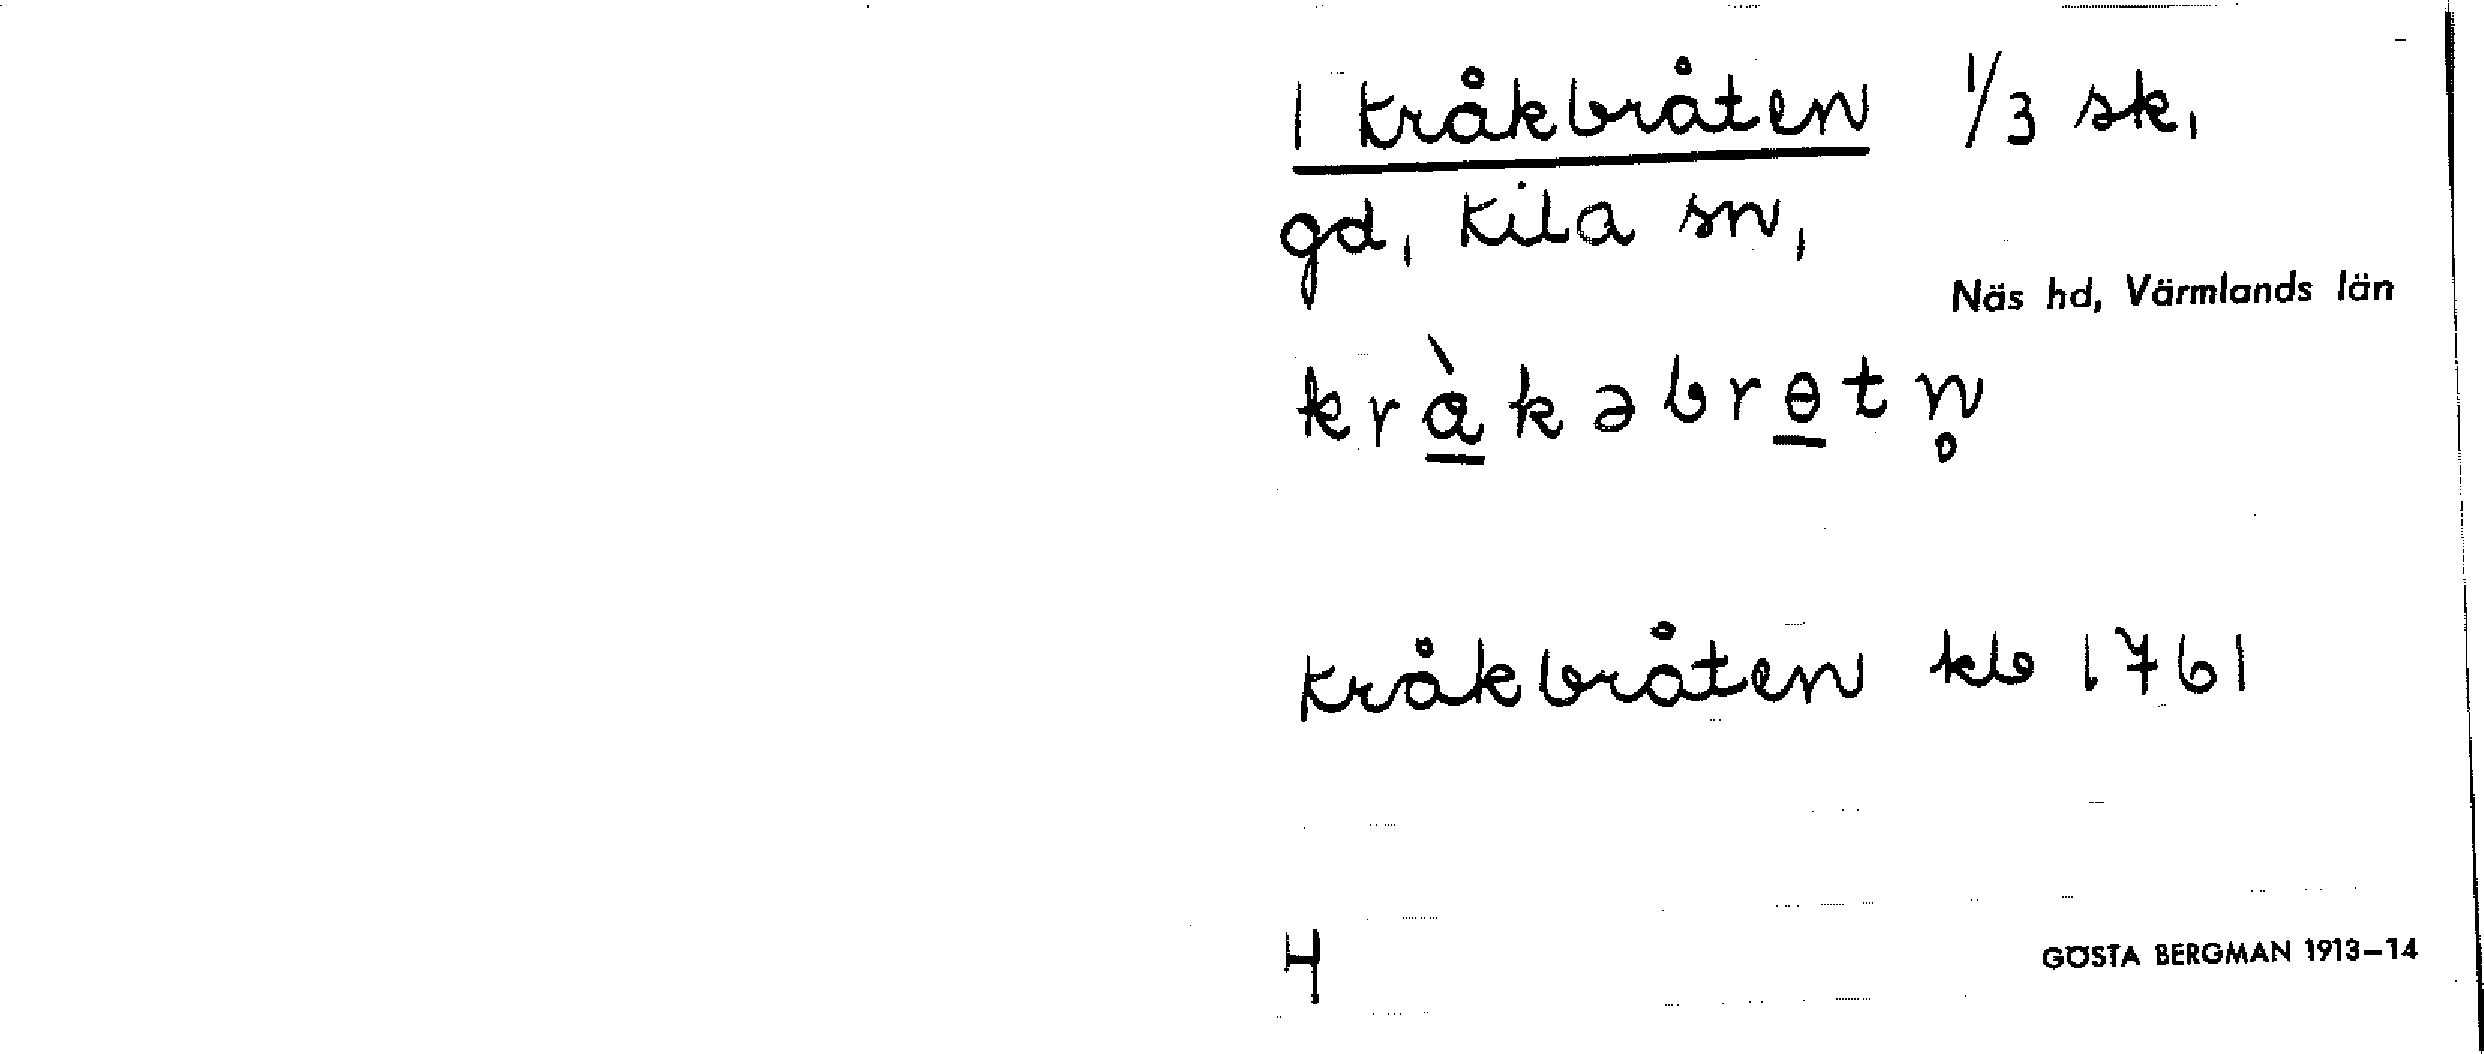 1 Kråkbråten 1/3 sk,
gd, Kila sn,
Näs hd, Värmlands län
krà̱kəbrɵ̱tn̥
Kråkbråten kb 1761
4
GÖSTA BERGMAN 1913–14